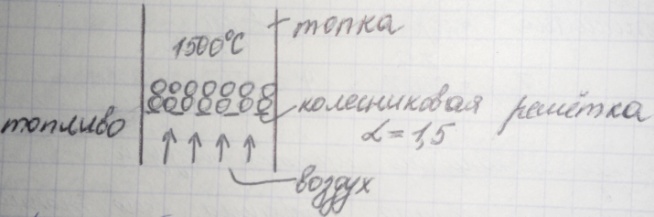 1500°C
топка
топливо
колесниковая решётка
α = 1,5
воздух